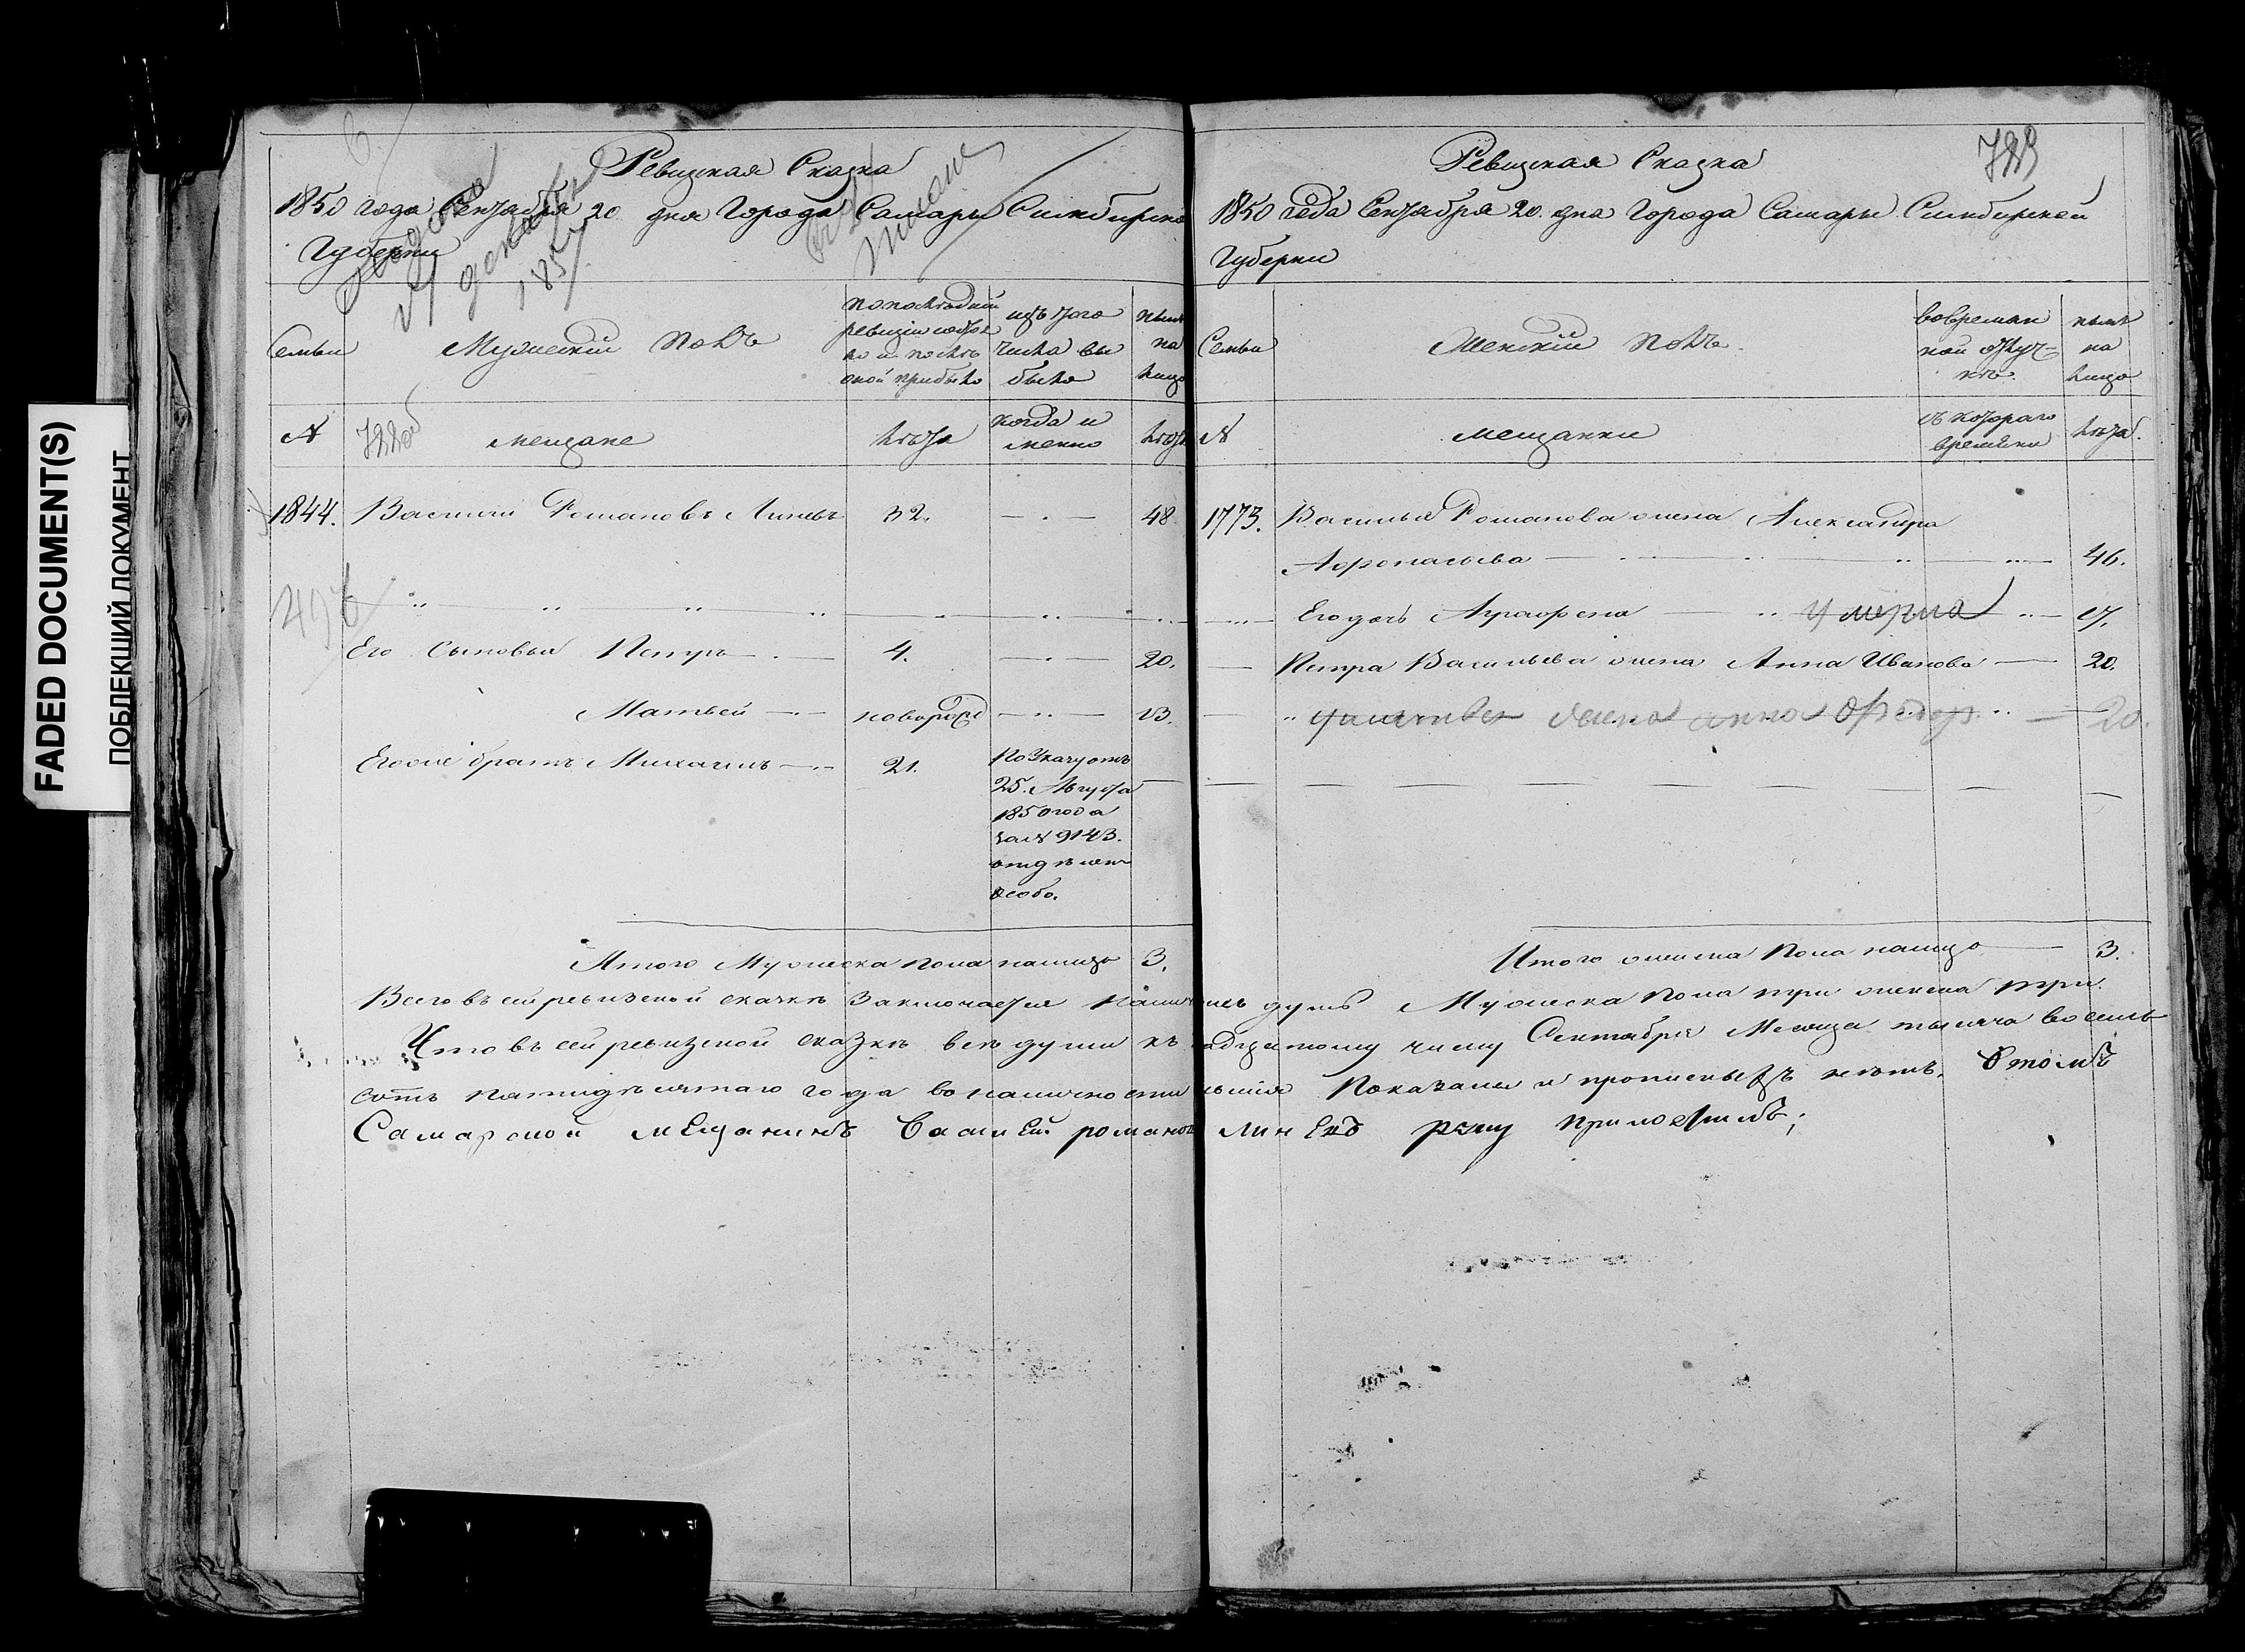 FADED DOCUMENT(S)
ПОБЛЕКШИЙ ДОКУМЕНТ
Ревизская Сказка
1850 года Сентября 20 дня Города Самары Симбирской
Губернии
1857
Семьи
Мужескій полъ
по последней
ревизіи состоя
ло и послѣ
оной прибыло
изъ того
числа вы
было
ныне
на
лицо
№
мещане
лѣта
когда и
менно
лѣта
1844. Василий Романовъ Линевъ 32. 48
Его Сыновья Петръ 4. 20.
Матвей новорожд 13.
Его же братъ Михаилъ 21.
По Указу отъ
25. Августа
1850 года
за № 9143.
отделенъ
особо.
Итого Мужеска пола налицо 3.
Ревизская Сказка
789
1850 года Сентября 20. дня Города Самары Симбирской
Губернии
Семьи
Женскій полъ
во времян
ной отлуч=
кѣ.
ныне
на
лицо
№
мещанки
съ котораго
времени
лѣта.
1773. Василья Романова жена Александра
Афонасьева 46.
Его дочь Аграфена умерла 17.
Петра Васильева жена Анна Иванова 20.
у матвея жена анна 20.
Итого женска пола налицо 3.
Всего въ сей ревизской сказкѣ заключается наличныхъ душъ Мужеска пола три женска три.
Что въ сей ревизской сказкѣ все души къ двадцатому числу Сентября Месяца тысяча восемь
сотъ пятидесятаго года во наличности бывшія показаны и прописныхъ нетъ. В томъ
Самарской мещанинъ Василей романовъ линевъ руку приложилъ;